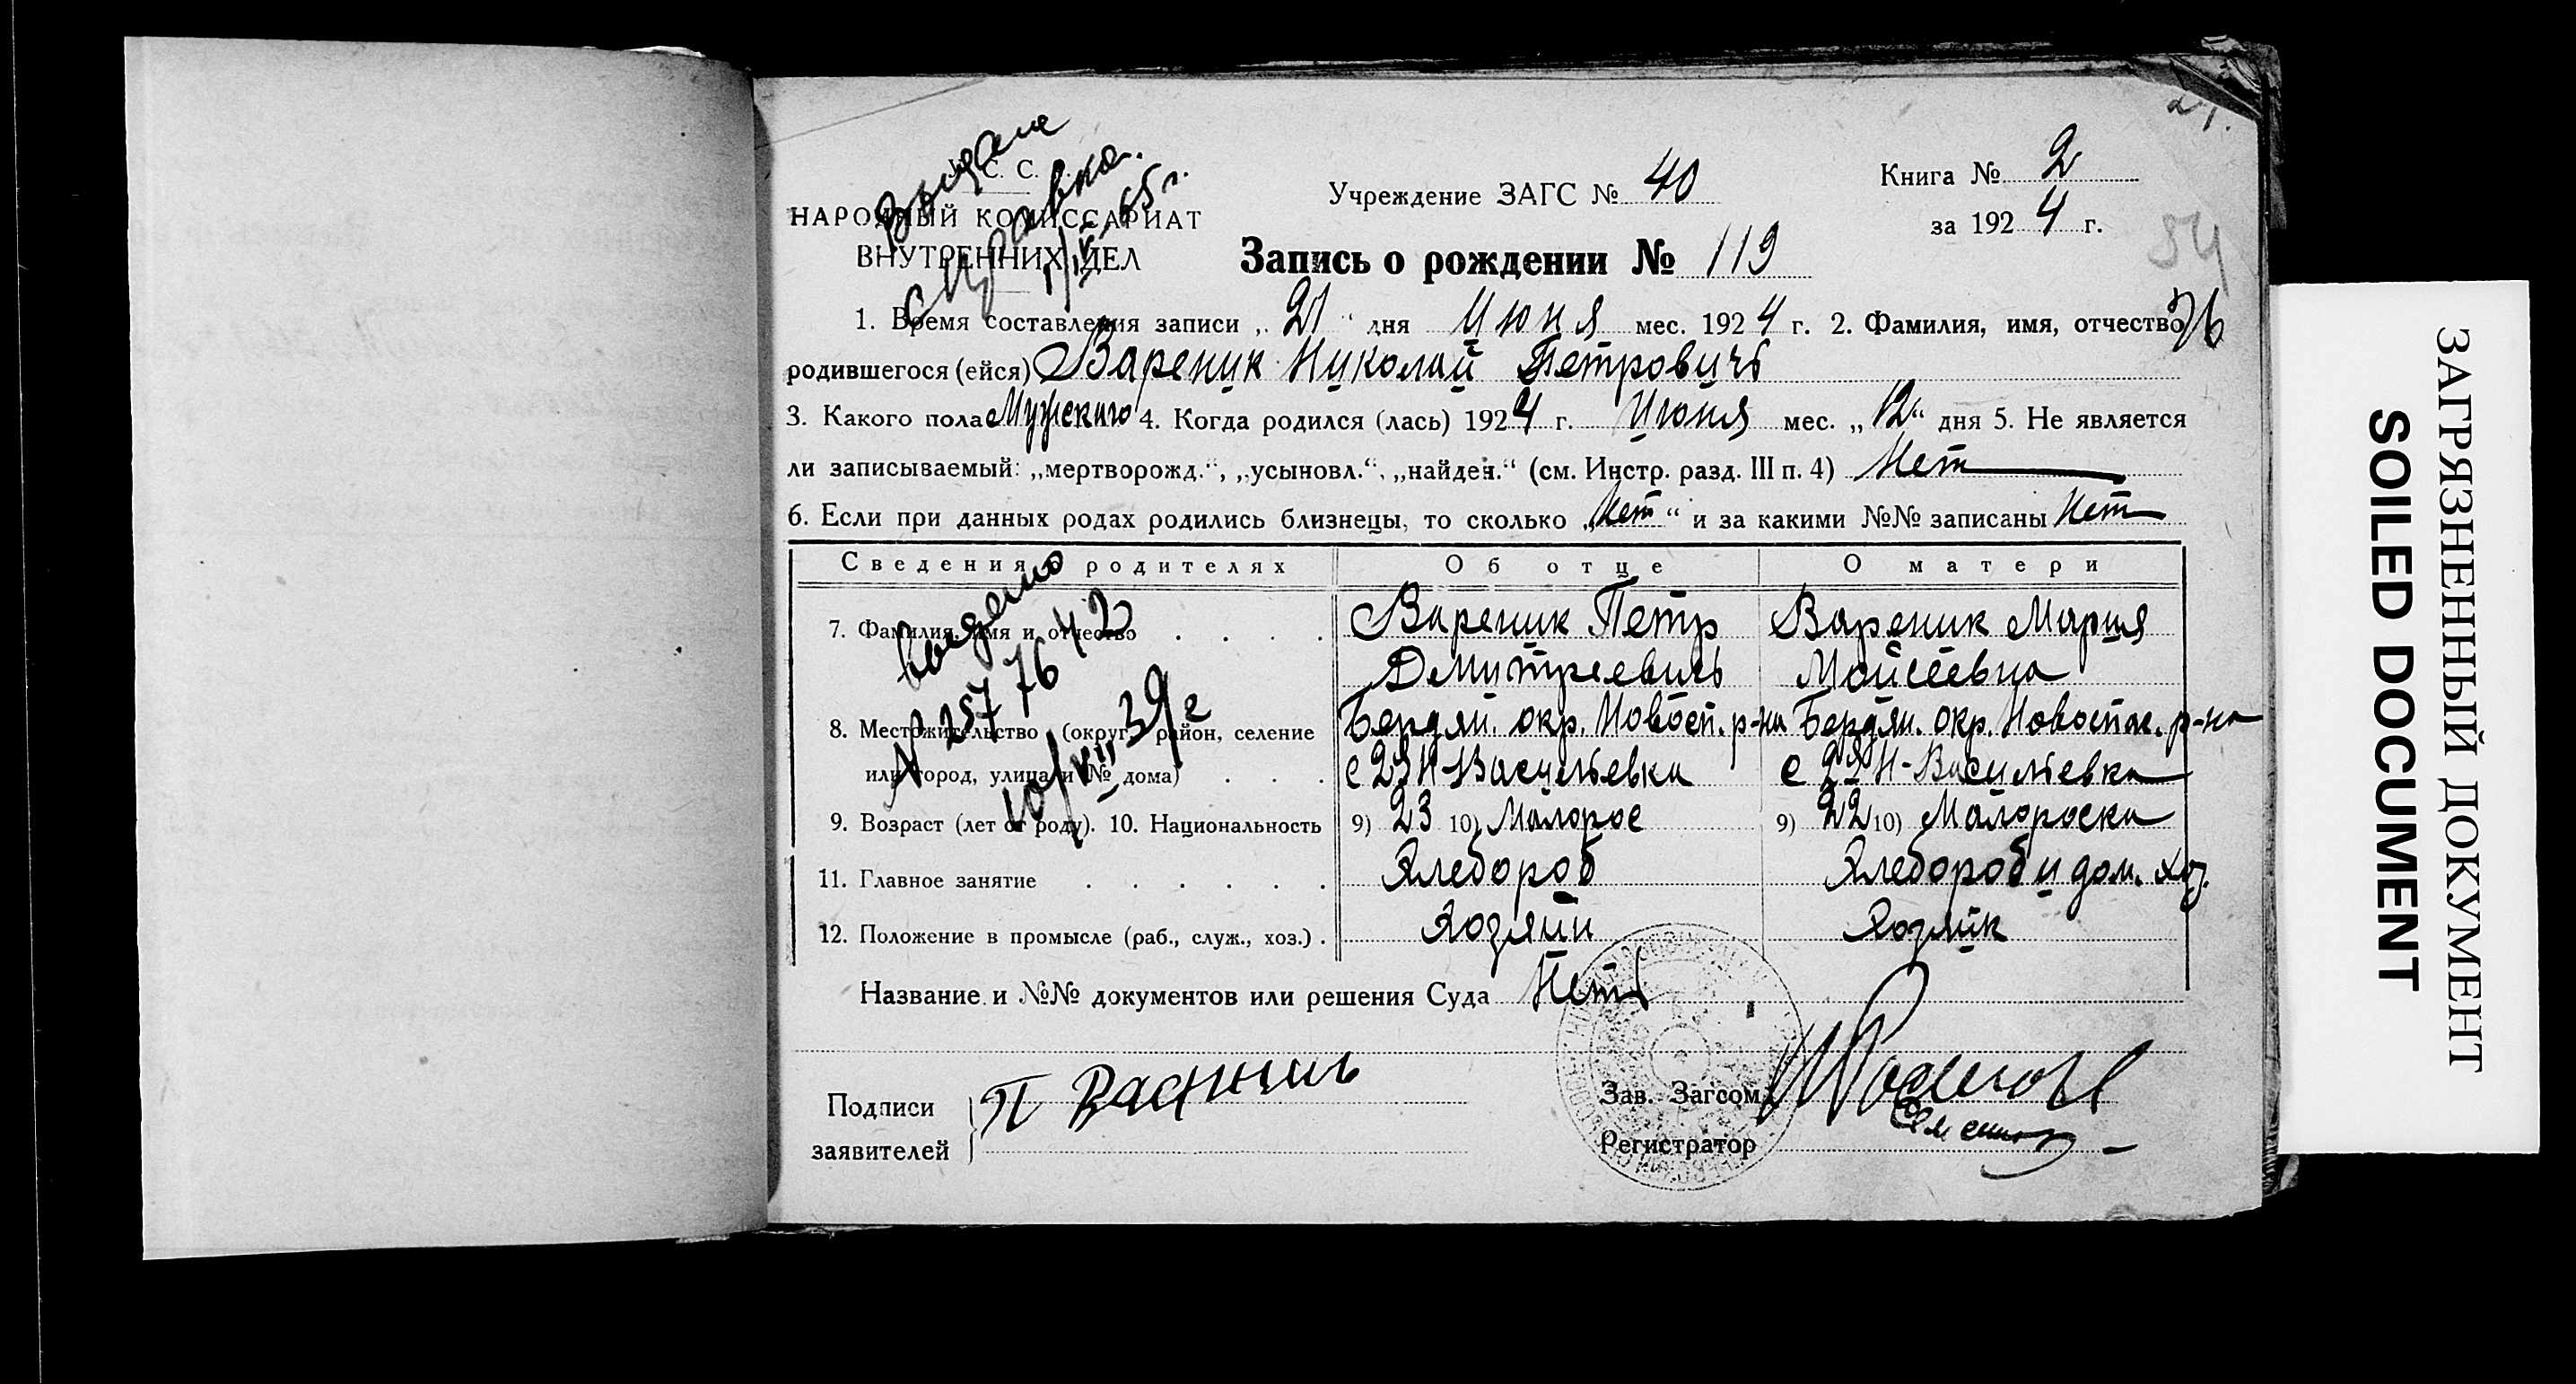 24.
С. С.
НАРОДНЫЙ КОМИССАРИАТ
ВНУТРЕННИХ ДЕЛ
Выдана
справка.
65 г.
Учреждение ЗАГС № 40
Книга № 2
за 1924 г.
54
Запись о рождении № 119
1. Время составления записи „21" дня Июня мес. 1924 г. 2. Фамилия, имя, отчество
76
родившегося (ейся) Вареник Николай Петровичъ
3. Какого пола Мужского 4. Когда родился (лась) 1924 г. Июня мес. „12" дня 5. Не является
ли записываемый: „мертворожд.", „усыновл.", „найден." (см. Инстр. разд. III п. 4) Нет
6. Если при данных родах родились близнецы, то сколько „Нет" и за какими №№ записаны Нет
Сведения о родителях Об отце О матери
7. Фамилия, имя и отчество Вареник Петр Вареник Мария
Дмитриевичъ Мойсеевна
8. Местожительство (округ, район, селение Бердян. окр. Новосп. р-на Бердян. окр. Новоспас. р-на
или город, улица и № дома) с Н-Васильевка с Н-Васильевка
9. Возраст (лет от роду). 10. Национальность 9) 23 10) Малорос 9) 22 10) Малороска
11. Главное занятие Хлебороб Хлебороб и дом. хоз.
12. Положение в промысле (раб., служ., хоз.) Хозяин Хозяик
Выдано
№ 257 76 42
10/VII 39 г
Название и №№ документов или решения Суда Нет
Подписи
заявителей
П
Зав. Загсом
Регистратор
ЗАГРЯЗНЕННЫЙ ДОКУМЕНТ
SOILED DOCUMENT